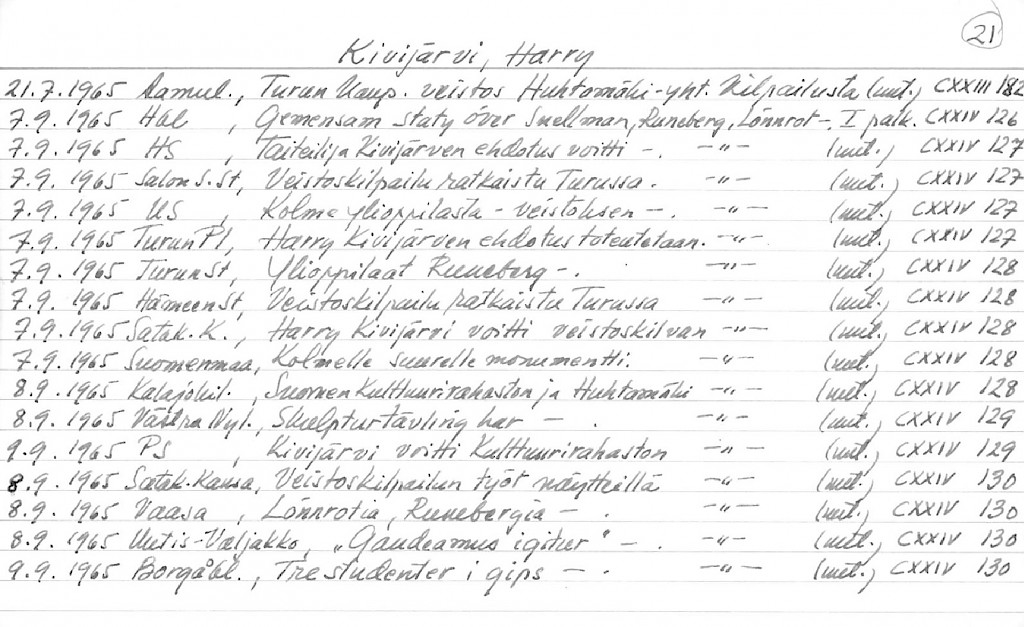 21
Kivijärvi, Harry
21.7.1965 Aamul., Turun Kaup. veistos Huhtamäki-yht. Kilpailusta (mt.) CXXIII 182
7.9.1965 Hbl , Gemensam staty över Snellman, Runeberg, Lönnrot -. I palk. CXXIV 126
7.9.1965 HS , Taiteilija Kivijärven ehdotus voitti -. -"- (mt.) CXXIV 127
7.9.1965 Salon S.St, Veistoskilpailu ratkaistu Turussa. -"- (mt.) CXXIV 127
7.9.1965 US , Kolme ylioppilasta - veistoksen -. -"- (mt.) CXXIV 127
7.9.1965 Turun Pl, Harry Kivijärven ehdotus toteutetaan. -"- (mt.) CXXIV 127
7.9.1965 Turun St, Ylioppilaat Runeberg -. -"- (mt.) CXXIV 128
7.9.1965 Hämeen St, Veistoskilpailu ratkaistu Turussa -"- (mt.) CXXIV 128
7.9.1965 Satak.K., Harry Kivijärvi voitti veistoskilvan -"- (mt.) CXXIV 128
7.9.1965 Suomenmaa, Kolmelle suurelle monumentti. -"- (mt.) CXXIV 128
8.9.1965 Kalajokil., Suomen Kulttuurirahaston ja Huhtamäki -"- (mt.) CXXIV 128
8.9.1965 Västra Nyl., Skulpturtävling har - . -"- (mt.) CXXIV 129
9.9.1965 PS , Kivijärvi voitti Kulttuurirahaston -"- (mt.) CXXIV 129
8.9.1965 Satak.Kansa, Veistoskilpailun työt näytteillä -"- (mt.) CXXIV 130
8.9.1965 Vaasa , Lönnrotia, Runebergia - . -"- (mt.) CXXIV 130
8.9.1965 Uutis-Väljakko, „Gaudeamus igitur" - . -"- (mt.) CXXIV 130
9.9.1965 Borgåbl., Tre studenter i gips - . -"- (mt.) CXXIV 130